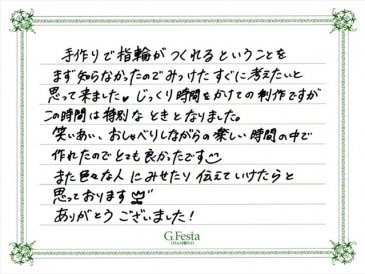 手作りで指輪がつくれるということを
まず知らなかったのでみっけたすぐに考えたいと
思って来ました♥じっくり時間をかけての制作ですが
この時間は特別なときとなりました。
笑いあい、おしゃべりしながらの楽しい時間の中で
作れたのでとても良かったです
また色々な人にみせたり伝えていけたらと
思っております
ありがとうございました！
G.Festa
DIAMOND